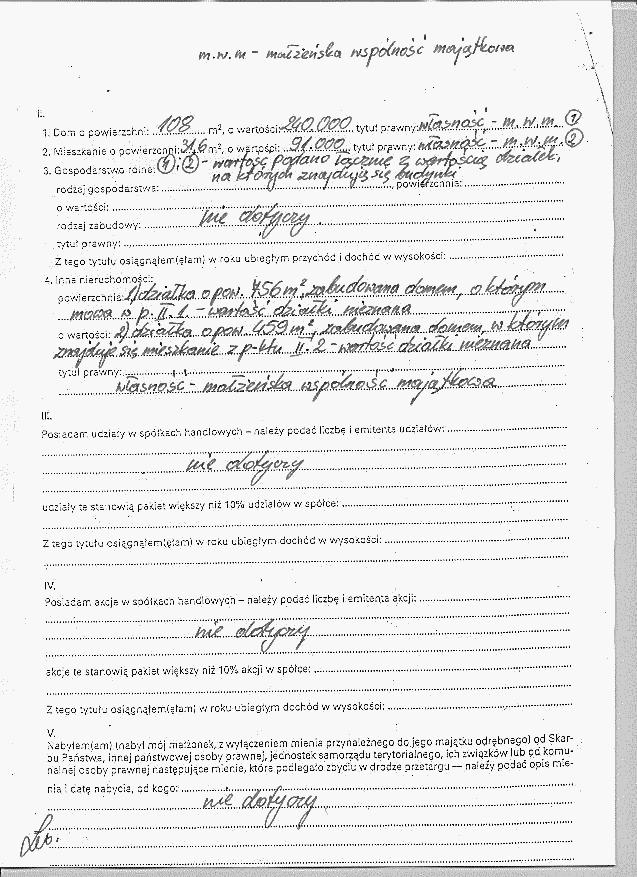 m.w.m – małżeńska wspólność majątkowa
II.
1. Dom o powierzchni: 108 m², o wartości: 240.000 tytuł prawny: własność - m.w.m. ①
2. Mieszkanie o powierzchni: 31,6 m², o wartości: 91.000, tytuł prawny: własność - m.w.m. ②
3. Gospodarstwo rolne: ①; ② - wartość podano łącznie z wartością działek,
na których znajdują się budynki
rodzaj gospodarstwa: , powierzchnia:
o wartości:
rodzaj zabudowy: nie dotyczy
tytuł prawny:
Z tego tytułu osiągnąłem(ęłam) w roku ubiegłym przychód i dochód w wysokości:
4. Inne nieruchomości:
powierzchnia: 1) działka o pow. 756 m², zabudowana domem, o którym
mowa w p. II.1 - wartość działki nieznana
o wartości: 2) działka o pow. 459 m², zabudowana domem, w którym
znajduje się mieszkanie z p-ktu II.2 - wartość działki nieznana
tytuł prawny:
własność - małżeńska wspólność majątkowa
III.
Posiadam udziały w spółkach handlowych – należy podać liczbę i emitenta udziałów:
nie dotyczy
udziały te stanowią pakiet większy niż 10% udziałów w spółce:
Z tego tytułu osiągnąłem(ęłam) w roku ubiegłym dochód w wysokości:
IV.
Posiadam akcje w spółkach handlowych – należy podać liczbę i emitenta akcji:
nie dotyczy
akcje te stanowią pakiet większy niż 10% akcji w spółce:
Z tego tytułu osiągnąłem(ęłam) w roku ubiegłym dochód w wysokości:
V.
Nabyłem(am) (nabył mój małżonek, z wyłączeniem mienia przynależnego do jego majątku odrębnego) od Skar-
bu Państwa, innej państwowej osoby prawnej, jednostek samorządu terytorialnego, ich związków lub od komu-
nalnej osoby prawnej następujące mienie, które podlegało zbyciu w drodze przetargu — należy podać opis mie-
nia i datę nabycia, od kogo:
nie dotyczy